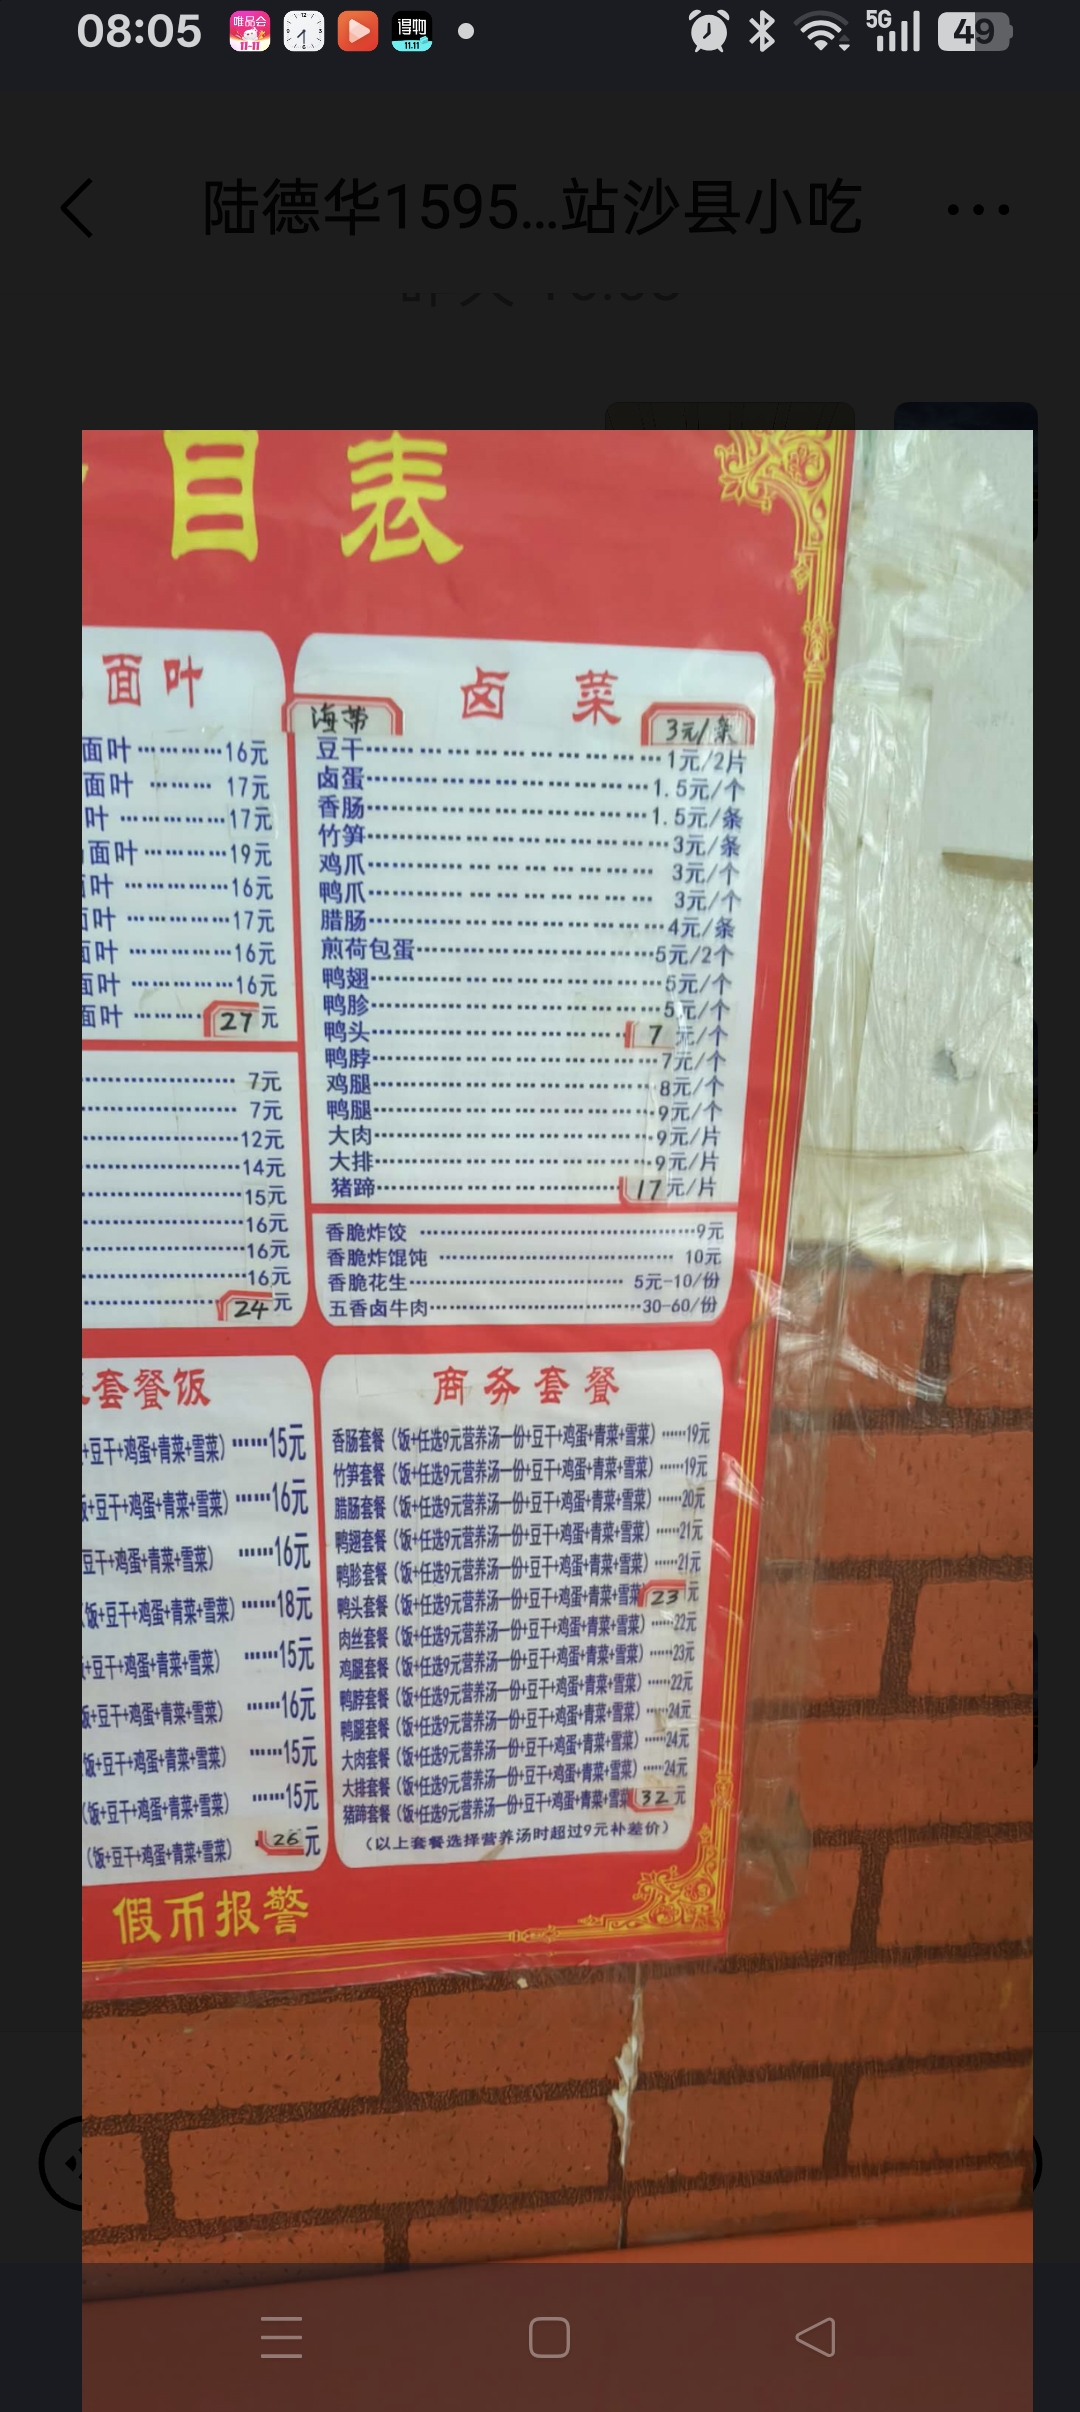 08:05
唯品会
11-11
得物
11.11
5G
49
陆德华1595...站沙县小吃
目表
面叶
面叶…………16元
面叶……… 17元
叶…………17元
面叶…………19元
叶…………16元
叶…………17元
面叶…………16元
面叶…………16元
面叶………27元
7元
7元
12元
14元
15元
16元
16元
16元
24元
卤 菜
海带 3元/条
豆干……1元/2片
卤蛋……1.5元/个
香肠……1.5元/条
竹笋……3元/条
鸡爪……3元/个
鸭爪……3元/个
腊肠……4元/条
煎荷包蛋……5元/2个
鸭翅……5元/个
鸭胗……5元/个
鸭头……7元/个
鸭脖……7元/个
鸡腿……8元/个
鸭腿……9元/个
大肉……9元/片
大排……9元/片
猪蹄……17元/片
香脆炸饺……9元
香脆炸馄饨……10元
香脆花生……5元-10/份
五香卤牛肉……30-60/份
套餐饭
+豆干+鸡蛋+青菜+雪菜)……15元
+豆干+鸡蛋+青菜+雪菜)……16元
豆干+鸡蛋+青菜+雪菜)……16元
饭+豆干+鸡蛋+青菜+雪菜)……18元
+豆干+鸡蛋+青菜+雪菜)……15元
饭+豆干+鸡蛋+青菜+雪菜)……16元
饭+豆干+鸡蛋+青菜+雪菜)……15元
(饭+豆干+鸡蛋+青菜+雪菜)……15元
(饭+豆干+鸡蛋+青菜+雪菜) 26元
商务套餐
香肠套餐(饭+任选9元营养汤一份+豆干+鸡蛋+青菜+雪菜)……19元
竹笋套餐(饭+任选9元营养汤一份+豆干+鸡蛋+青菜+雪菜)……19元
腊肠套餐(饭+任选9元营养汤一份+豆干+鸡蛋+青菜+雪菜)……20元
鸭翅套餐(饭+任选9元营养汤一份+豆干+鸡蛋+青菜+雪菜)……21元
鸭胗套餐(饭+任选9元营养汤一份+豆干+鸡蛋+青菜+雪菜)……21元
鸭头套餐(饭+任选9元营养汤一份+豆干+鸡蛋+青菜+雪菜 23元
肉丝套餐(饭+任选9元营养汤一份+豆干+鸡蛋+青菜+雪菜)……22元
鸡腿套餐(饭+任选9元营养汤一份+豆干+鸡蛋+青菜+雪菜)……23元
鸭脖套餐(饭+任选9元营养汤一份+豆干+鸡蛋+青菜+雪菜)……22元
鸭腿套餐(饭+任选9元营养汤一份+豆干+鸡蛋+青菜+雪菜)……24元
大肉套餐(饭+任选9元营养汤一份+豆干+鸡蛋+青菜+雪菜)……24元
大排套餐(饭+任选9元营养汤一份+豆干+鸡蛋+青菜+雪菜)……24元
猪蹄套餐(饭+任选9元营养汤一份+豆干+鸡蛋+青菜+雪菜 32元
(以上套餐选择营养汤时超过9元补差价)
假币报警